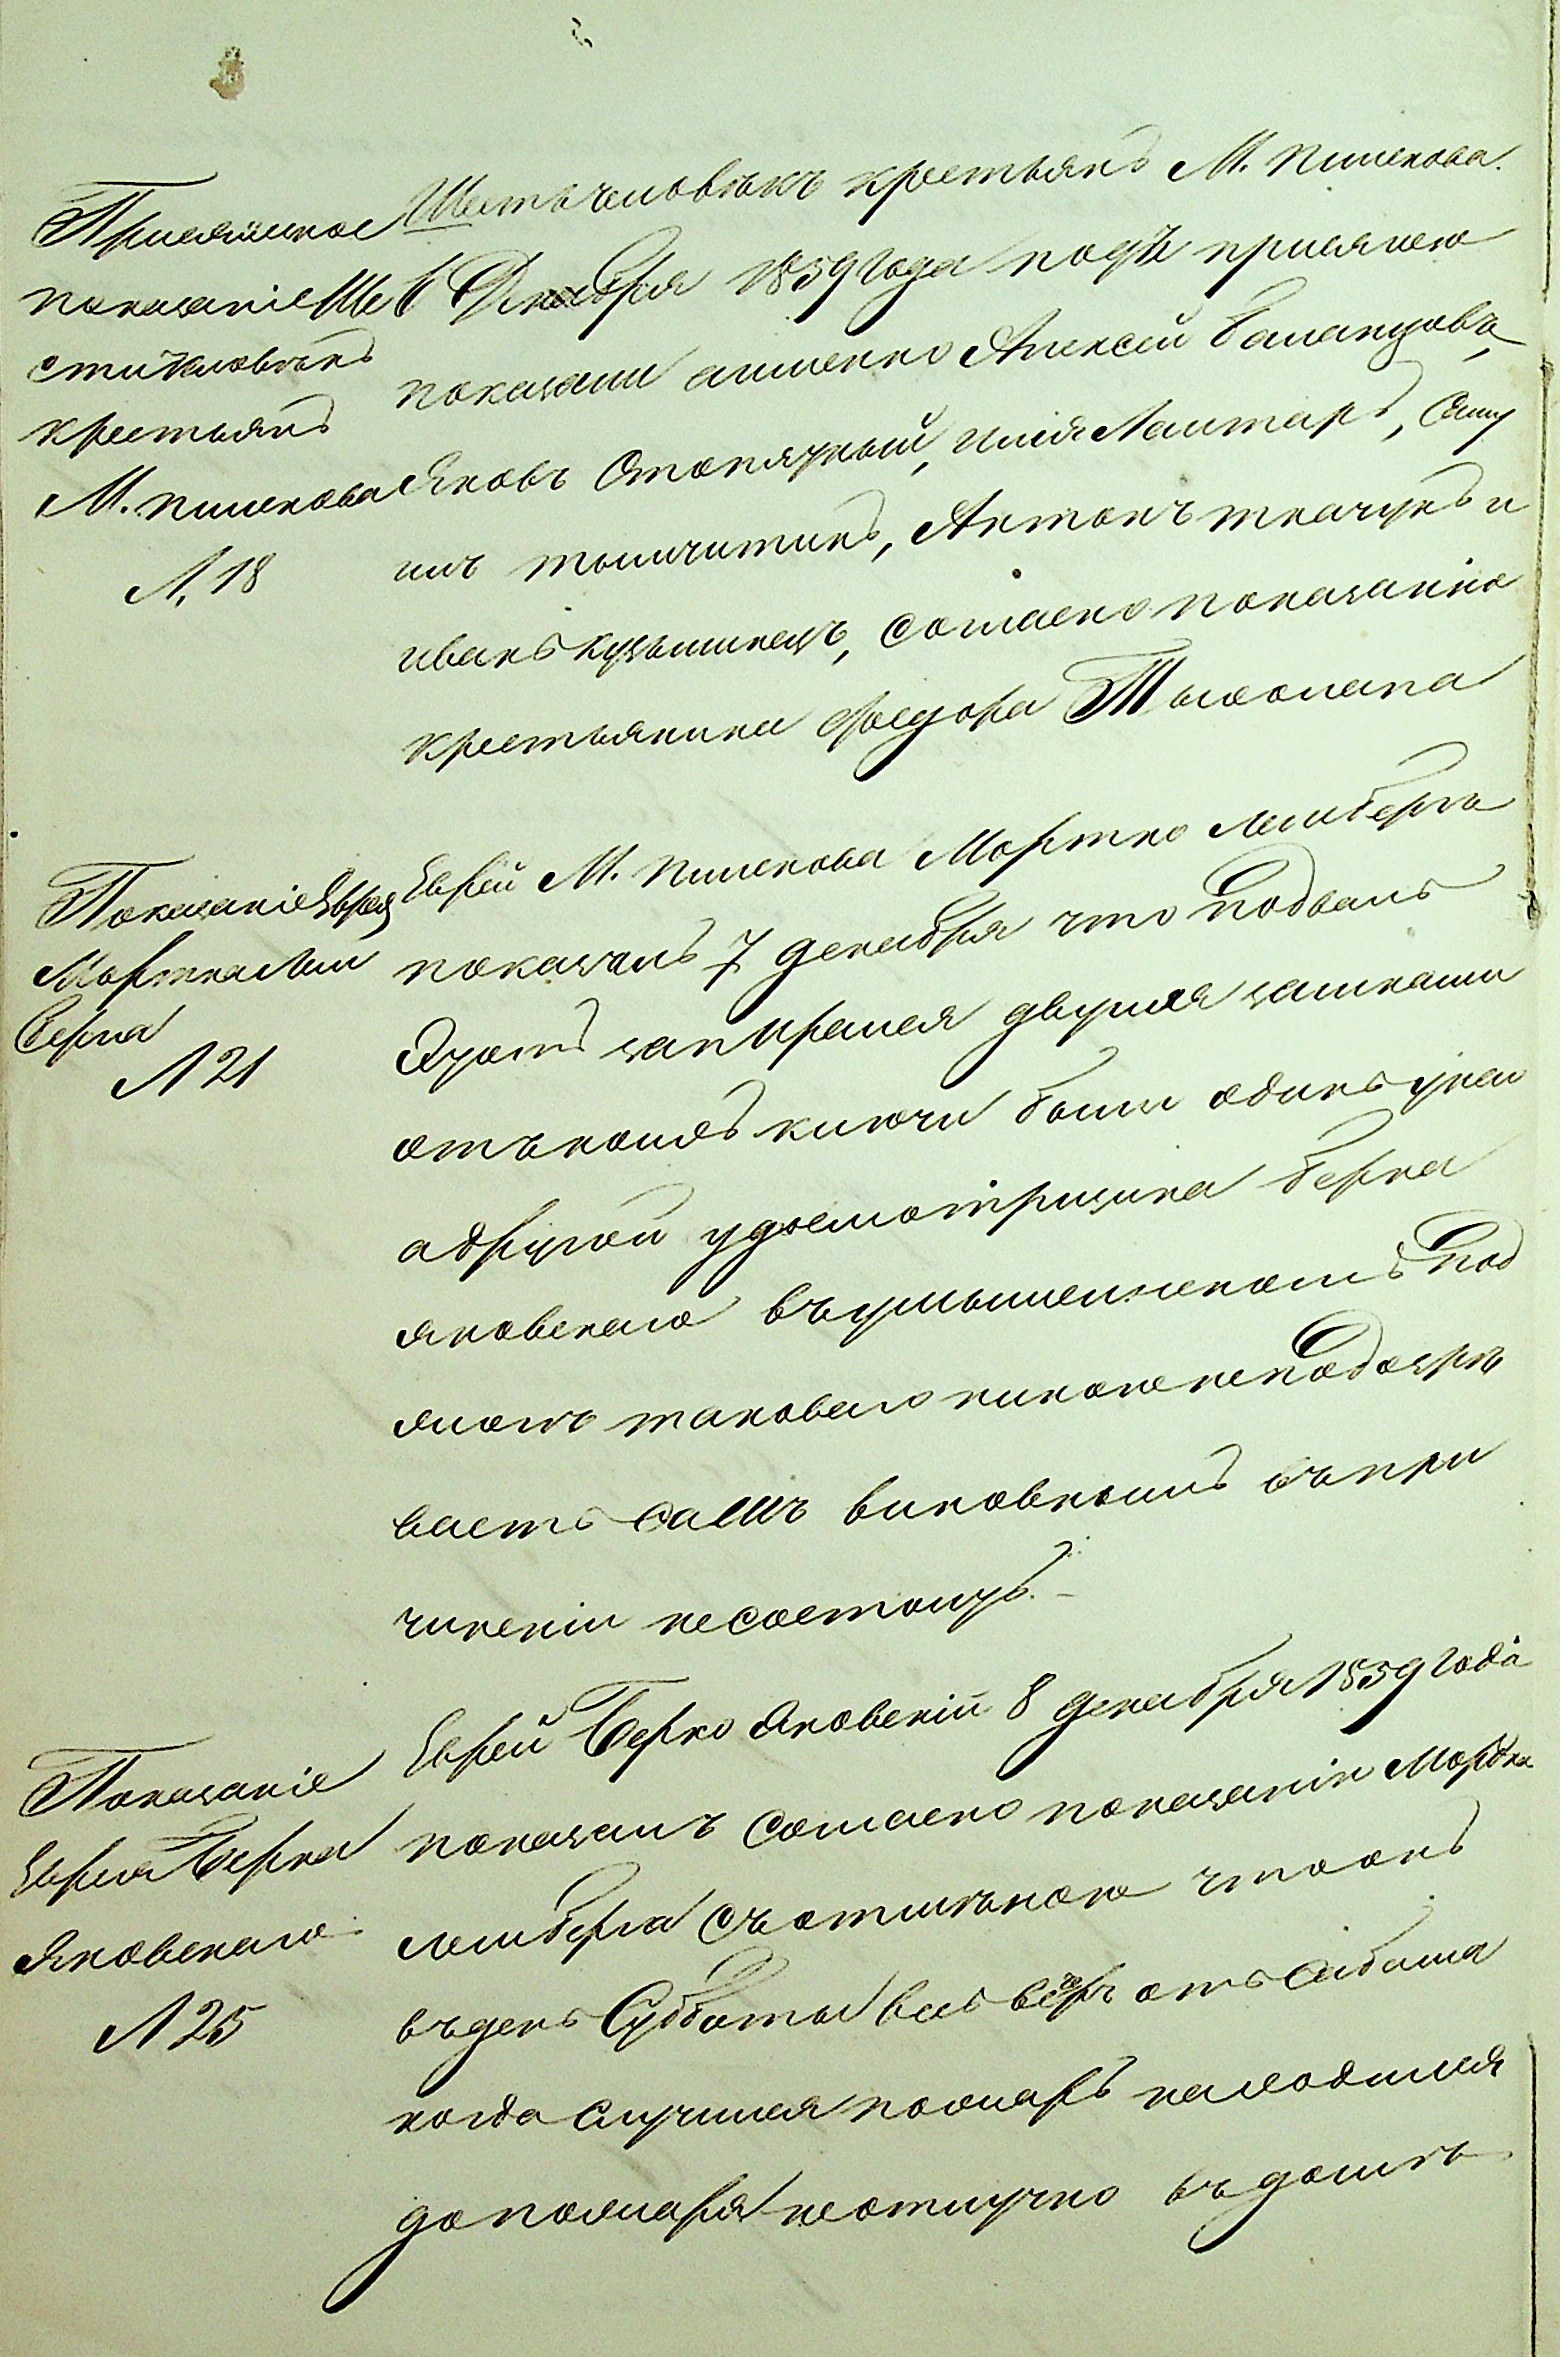 Присяжное
показаніе Ше
стичеловѣкъ
крестьянъ
М. Пикова
Л. 18
Шесть человѣкъ крестьянъ М. Пикова
6 Декабря 1859 года подъ присягою
показали а именно Алексей
Яковъ илія Лантаръ,
Антонъ ткачукъ и
иванъ согласно показанію
крестьянина Федора
Показаніе Еврея
Мортка Лем
берга
Л 21
Еврей М. Пикова Мортко Лемберга
показалъ 7 декабря что подвалъ
запирался двумя замками
отъ коихъ ключи были одинъ у него
а другой у досмотрщика Берка
Яковскаго въ умышленномъ под
таковаго никого неподозрѣ
ваетъ самъ виновнымъ въ при
чиненіи несостоитъ
Показаніе
Еврея Берка
Яковскаго
Л 25
Еврей Берко Яковскій 8 декабря 1859 года
показалъ согласно показанію Мордка
лемберга съ отмѣною что онъ
въ день Субботы весь вечеръ отъ
когда случился пожаръ находился
до пожара неотлучно въ домѣ